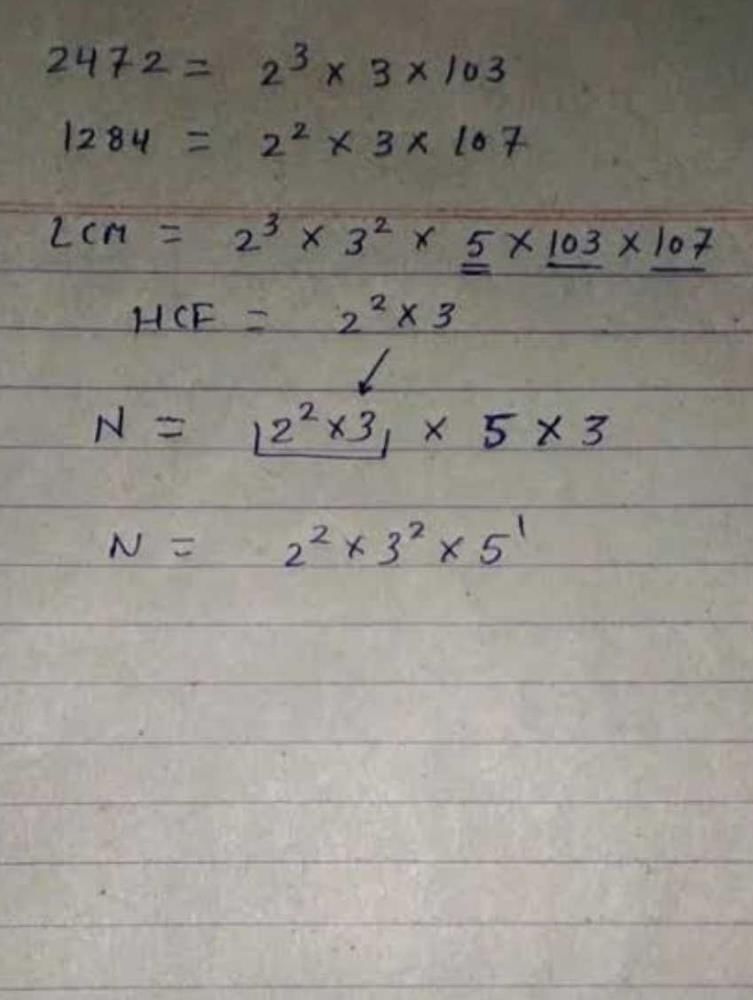 2472 = 2³ × 3 × 103
1284 = 2² × 3 × 107
LCM = 2³ × 3² × 5 × 103 × 107
HCF = 2² × 3
N = 2² × 3 × 5 × 3
N = 2² × 3² × 5¹